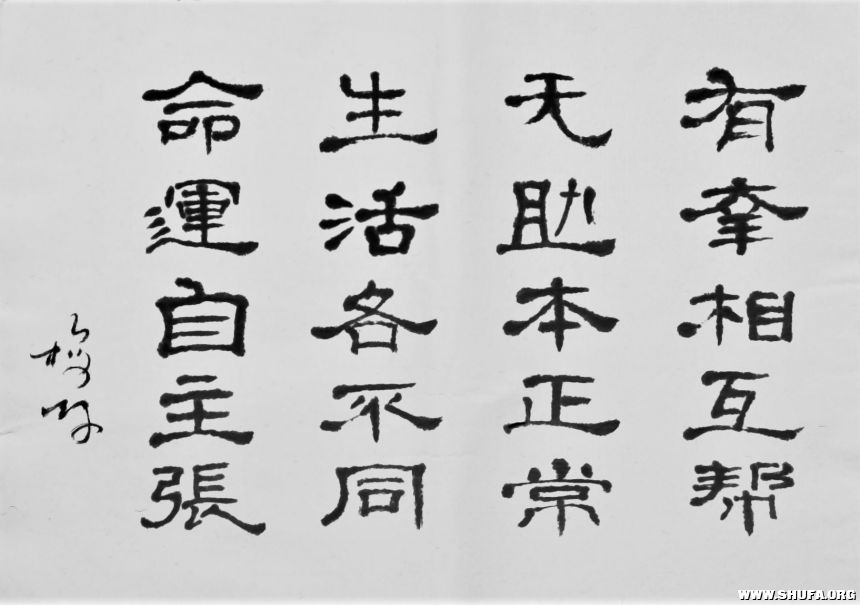 有幸相互帮
无助本正常
生活各不同
命運自主張
WWW.SHUFA.ORG